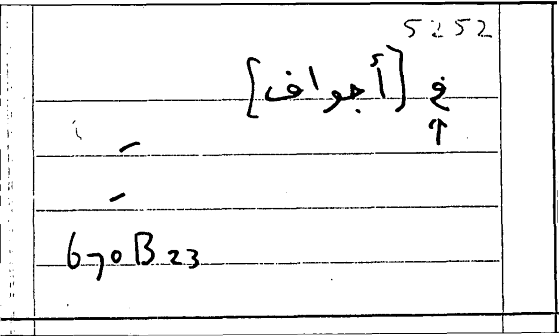 5252
ف [أجواف]
↑
670B23